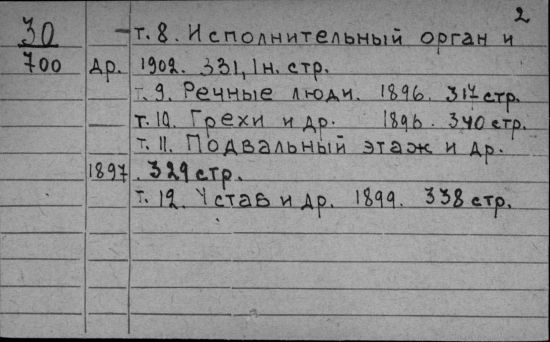 2
30
700
т. 8. Исполнительный орган и
др. 1902. 331, 1 н. стр.
т. 9. Речные люди. 1896. 317 стр.
т. 10. Грехи и др. 1896. 340 стр.
т. 11. Подвальный этаж и др.
1897. 329 стр.
т. 12. Устав и др. 1899. 338 стр.